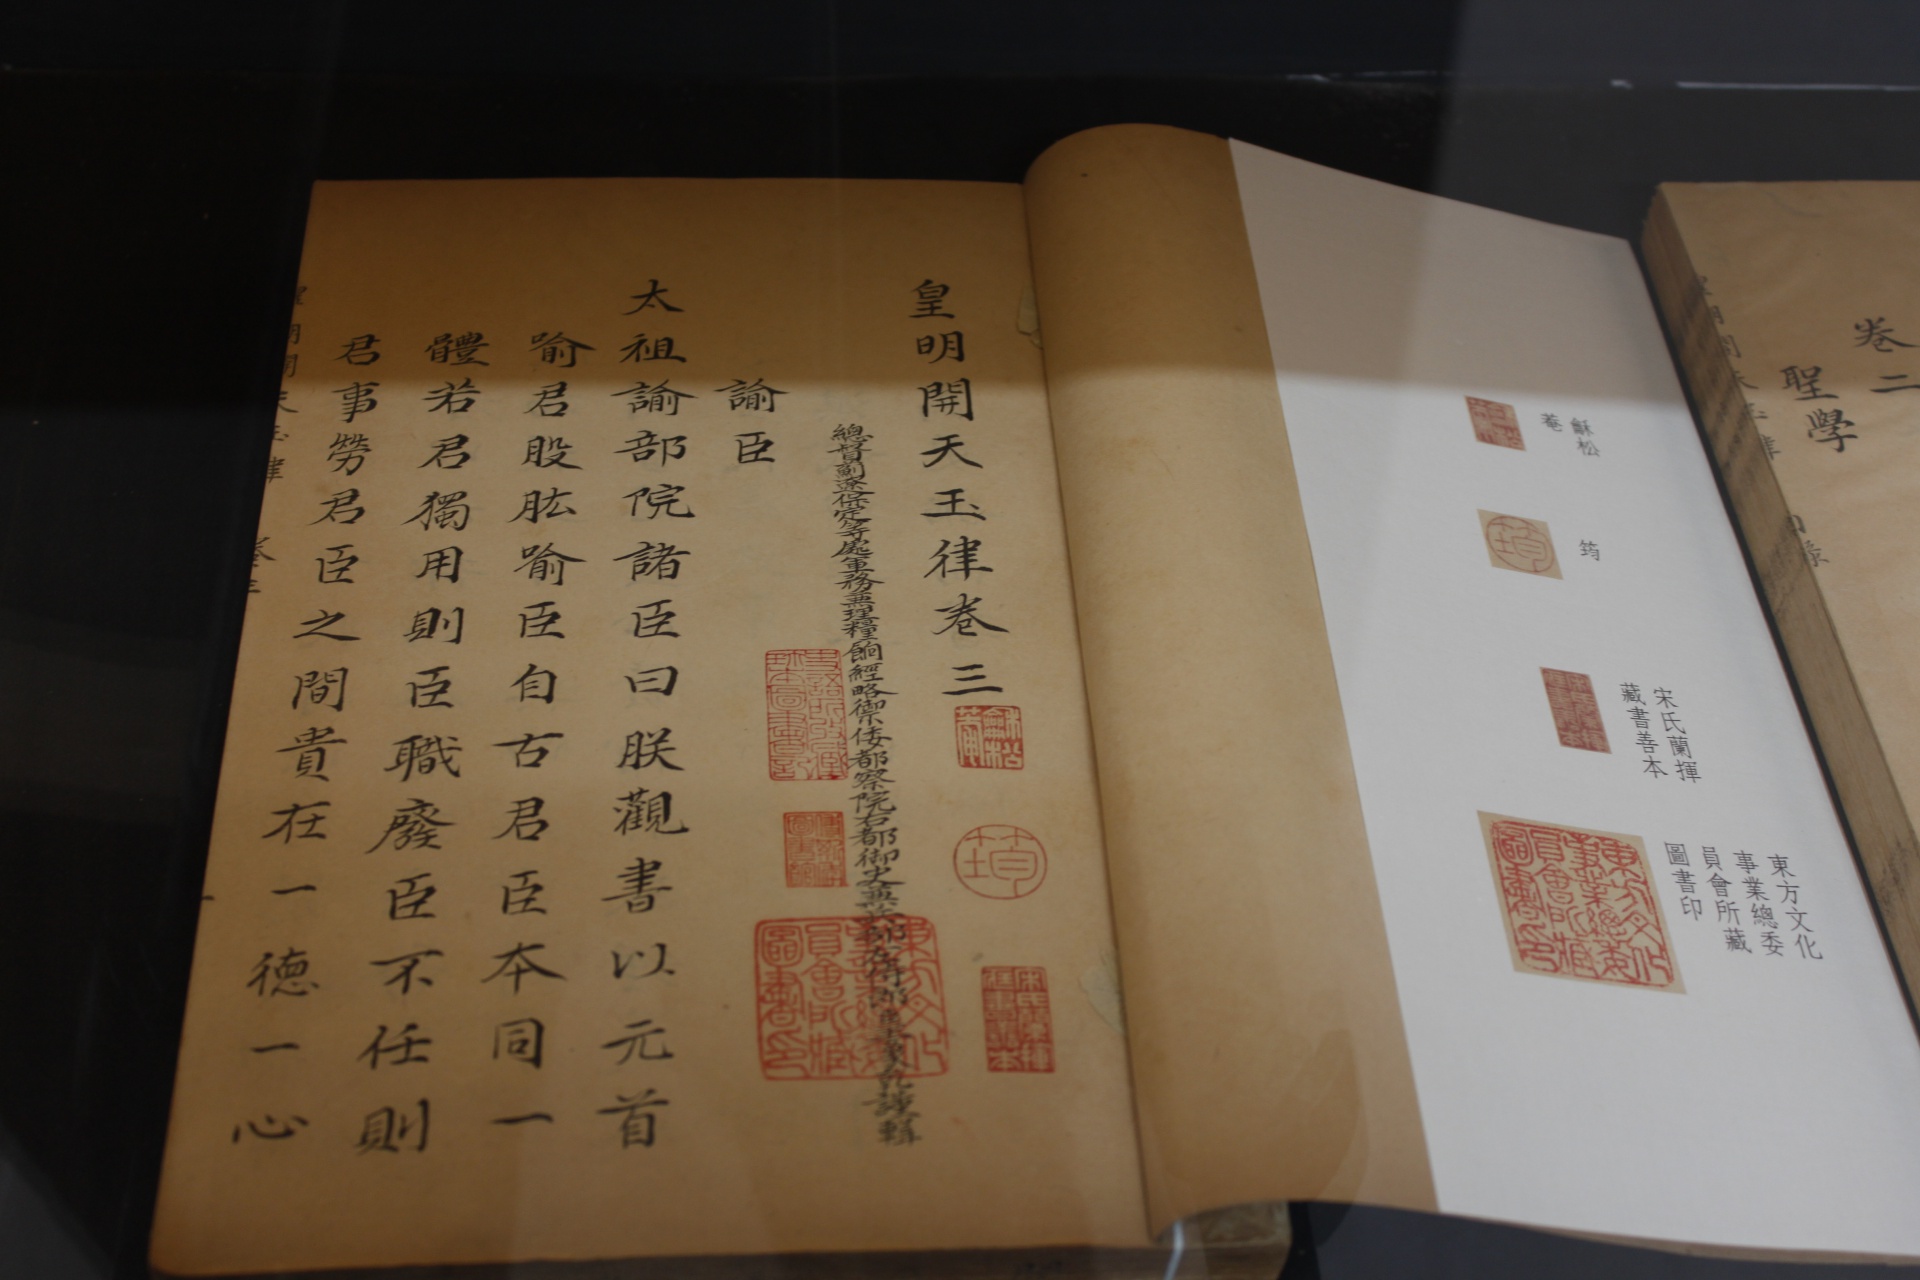 皇明開天玉律卷三
總督薊遼保定等處軍務兼理糧餉經略禦倭都察院右都御史兼兵部右侍郎
諭臣
太祖諭部院諸臣曰朕觀書以元首
喻君股肱喻臣自古君臣本同一
體若君獨用則臣職廢臣不任則
君事勞君臣之間貴在一德一心
龢松
菴
筠
宋氏蘭揮
藏書善本
東方文化
事業總委
員會所藏
圖書印
卷二
聖學